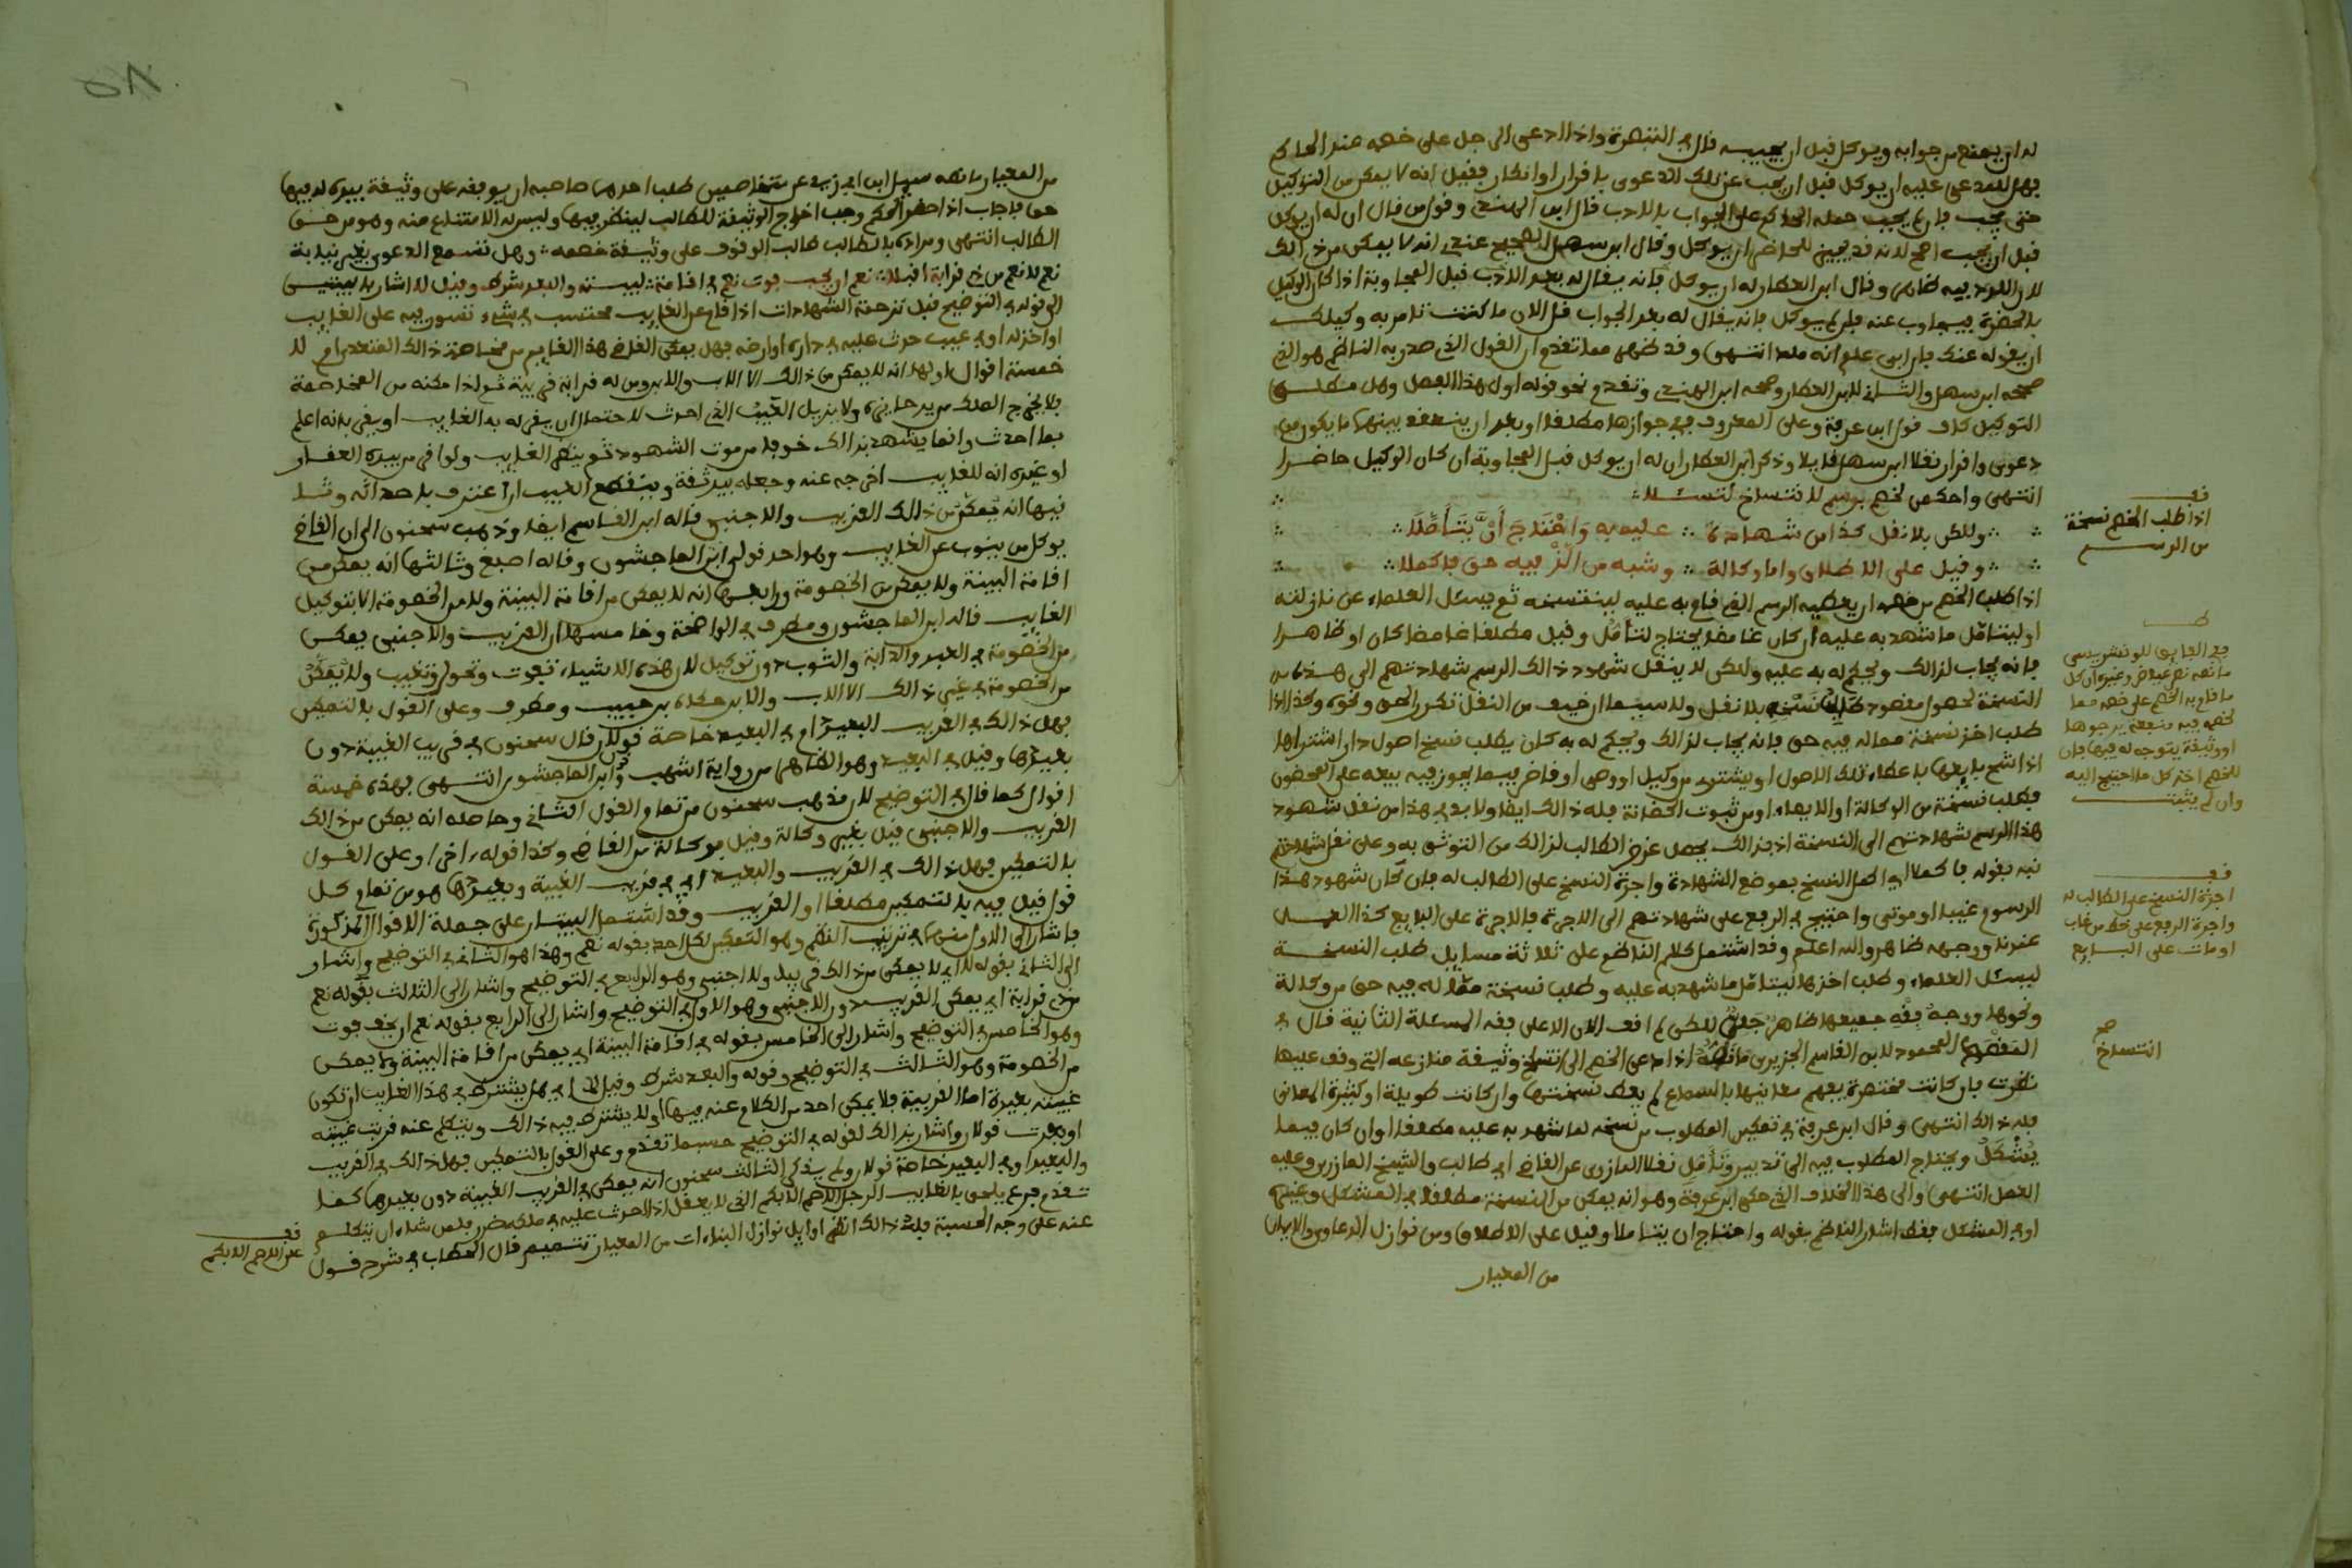 له ان يمتنع من جوابه ويوكل قبل ان يجيب قال في التبصرة واذا ادعى الرجل على خصمه عند الحاكم
فهل للمدعى عليه ان يوكل قبل ان يجيب عن تلك الدعوى باقرار او انكار فقيل انه لا يمكن من التوكيل
حتى يجيب فان لم يجب حمله الحاكم على الجواب بالادب قال ابن الهندي وقول من قال ان له ان يوكل
قبل ان يجيب اصح لانه قد يجيز للحاضر ان يوكل وقال ابن سهل الصحيح عندي انه لا يمكن من ذالك
لان اللدد فيه ظاهر وقال ابن العطار له ان يوكل فانه يقال له بعد الادب قبل المجاوبة اذا كان الوكيل
بالحضرة فيجاوب عنه فان لم يوكل فانه يقال له بعد الجواب قل الان ما كنت تامر به وكيلك
ان يقوله عنك فان ابى علم انه ملد انتهى وقد ظهر مما تقدم ان القول الذي صدر به الناظم هو الذي
صححه ابن سهل والثاني لابن العطار وصححه ابن الهندي وتقدم نحو قوله اول هذا الفصل وهل
التوكيل قول ابن عرفة وعلى المعروف في جوازها مطلقا او بعد ان ينعقد بينهما ما يكون من
دعوى واقرار نقلا ابن سهل قايلا وذكر ابن العطار ان له ان يوكل قبل المجاوبة ان كان الوكيل حاضرا
انتهى
وللكن بلا نقل كذا من شهادة عليه به واحتاج ان يتأملا
وقيل على الاطلاق واما وكالة وشبه من الذ فيه حق فاكملا
اذا طلب الخصم من خصمه ان يعطيه الرسم الذي قام به عليه لينتسخه ثم يسئل العلماء عن نازلته
او ليتامل ما شهد به عليه ان كان غامضا يحتاج لتأمل وقيل مطلقا غامضا كان او ظاهرا
فانه يجاب لذالك ويحكم له به عليه وللكن لا ينقل شهود ذالك الرسم شهادتهم الى هذه
النسخة لحصول مقصود طالب نسخه بلا نقل ولا سيما ان خيف من النقل تكرر الحق ونحوه وكذا اذا
طلب اخذ نسخة مما له فيه حق فانه يجاب لذالك ويحكم له به كان يطلب نسخ اصول دار اشتراها
اذا شح بايعها باعطاء تلك الاصول او يشتري من وكيل او وصي او قاض فيما يجوز فيه بيعه على المحضون
فيطلب نسخة من الوكالة او الايصاء او من ثبوت الحضانة فله ذالك ايضا ولا بد في هذا من نقل شهود
هذا الرسم شهادتهم الى النسخة اذ بذالك يحصل غرض الطالب لذالك من التوثق به وعلى نقل شهادتهم
نبه بقوله فاكملا اي اكمل النسخ بموضع الشهادة واجرة النسخ على الطالب له فان كان شهود هذا
الرسم غيبا او موتى واحتيج في الرفع على شهادتهم الى الاجرة فالاجرة على البايع كذا العمل
عندنا ووجهه ظاهر والله اعلم وقد اشتمل كلام الناظم على ثلاثة مسايل طلب النسخة
ليسئل العلماء وطلب اخذها ليتامل ما شهد به عليه وطلب نسخة مما له فيه حق من وكالة
ونحوها ووجه فقه جميعها ظاهر جلي للكن لم اقف الان الا على فقه المسئلة الثانية قال في
المقصد المحمود لابن القاسم الجزيري ما نصه اذا دعى الخصم الى انتساخ وثيقة منازعه التي وقف عليها
نظرت فان كانت مختصرة يفهم معانيها بالسماع لم يعط نسختها وان كانت طويلة او كثيرة المعاني
فله ذالك انتهى وقال ابن عرفة في تمكين المطلوب من نسخه لما شهد به عليه مطلقا او ان كان فيما
يشكل ويحتاج المطلوب فيه الى تدبير وتأمل نقلا المازري عن القاضي ابي طالب والشيخ المازري وعليه
العمل انتهى والى هذا الخلاف الذي حكى ابن عرفة وهو انه يمكن من النسخة مطلقا في المشكل وغيره
او في المشكل فقط اشار الناظم بقوله واحتاج ان يتاملا وقيل على الاطلاق ومن نوازل الدعاوى والايمان
من المعيار
قف
اذا طلب الخصم نسخة
من الرسم
ما قام به الخصم على خصمه مما
لخصمه فيه منفعة يرجوها
او وثيقة يتوجه له فيها فان
للخصم اخذ كل ما احتيج اليه
وان لم يثبت
قف
اجرة النسخ على الطالب له
واجرة الرفع على خط من غاب
او مات على البايع
صح
انتساخ
من المعيار ما نصه سيل ابن ابي زيد عن متخاصمين طلب احدهما صاحبه ان يوقفه على وثيقة بيده له فيها
حق فاجاب اذا حضر الحكم وجب اخراج الوثيقة للطالب لينظر فيها وليس له الامتناع منه وهو من حق
الطالب انتهى ومراده بالطالب طالب الوقوف على وثيقة خصمه وهل تسمع الدعوى بغير نيابة
نعم لا نعم من ذي قرابة اقبلا نعم ان يخف فوت نعم في اقامة لبينة والبعد شرط وقيل لا اشار بالبيتين
الى قوله في التوضيح قبل ترجمة الشهادات اذا قام عن الغايب محتسب في شيء تسور فيه على الغايب
او اخذ له او في عيب حدث عليه في داره او ارضه فهل يمكن القاضي هذا القايم من مخاصمة ذالك المتعدي ام لا
خمسة اقوال اولها انه لا يمكن من ذالك الا الاب والابن ومن له قرابة قريبة ثم اذا مكنه من المخاصمة
فلا يخرج الملك من يد حايزه ولا يزيل العيب الذي احدث لاحتمال ان يقر له به الغايب او يقر بانه اعلم
بما احدث وانما يشهد بذالك خوفا من موت الشهود ثم ينتظر الغايب ولو اقر من بيده العقار
او غيره انه للغايب اخرجه عنه وجعله بيد ثقة وينقطع العيب ان اعترف باحداثه وثانيها
انه يمكن من ذالك القريب والاجنبي قاله ابن القاسم ايضا وذهب سحنون الى ان القاضي
يوكل من ينوب عن الغايب وهو احد قولي ابن الماجشون وقاله اصبغ وثالثها انه يمكن من
اقامة البينة ولا يمكن من الخصومة ورابعها انه لا يمكن من اقامة البينة ولا من الخصومة الا بتوكيل
الغايب قاله ابن الماجشون ومطرف في الواضحة وخامسها ان القريب والاجنبي يمكن
من الخصومة في العبد والدابة والثوب دون توكيل لان هذه الاشياء تفوت وتحول وتغيب ولا يمكن
من الخصومة في غير ذالك الا الاب والابن حكاه ابن حبيب ومطرف وعلى القول بالتمكين
فهل ذالك في القريب البعيد ام في البعيد خاصة قولان قال سحنون في قريب الغيبة دون
بعيدها وقيل في البعيد وهو الظاهر من رواية اشهب وابن الماجشون انتهى فهذه خمسة
اقوال كما قال في التوضيح لان مذهب سحنون من تمام القول الثاني وحاصله انه يمكن من ذالك
القريب والاجنبي قيل بغير وكالة وقيل بوكالة من القاضي وكذا قوله ءاخرا وعلى القول
بالتمكين فهل ذالك في القريب والبعيد اي في قريب الغيبة وبعيدها هو من تمام كل
قول قيل فيه بالتمكين مطلقا او القريب وقد اشتمل البيتان على جملة الاقوال المذكورة
فاشار الى الاول منها في ترتيب النظم وهو التمكين لكل احد بقوله نعم وهذا هو الثاني في التوضيح واشار
الى الثاني بقوله لا اي لا يمكن من ذالك قريب ولا اجنبي وهو الرابع في التوضيح واشار الى الثالث بقوله نعم
من ذي قرابة اي يمكن القريب دون الاجنبي وهو الاول في التوضيح واشار الى الرابع بقوله نعم ان يخف فوت
وهو الخامس في التوضيح واشار الى الخامس بقوله في اقامة البينة اي يمكن من اقامة البينة ولا يمكن
من الخصومة وهو الثالث في التوضيح وقوله والبعد شرط وقيل لا اي هل يشترط في هذا الغايب ان تكون
غيبته بعيدة اما القريبة فلا يمكن احد من الكلام عنه فيها او لا يشترط فيه ذالك ويتكلم عنه قربت غيبته
او بعدت قولان واشار بذالك لقوله في التوضيح حسبما تقدم وعلى القول بالتمكين فهل ذالك في القريب
والبعيد او في البعيد خاصة قولان ولم يذكر الثالث سحنون انه يمكن في القريب الغيبة دون بعيدها كما
تقدم فرع يلحق بالغايب الرجل الاصم الابكم الذي لا يعقل اذا احدث عليه في ملكه ضرر فلمن شاء ان يتكلم
عنه على وجه الحسبة فله ذالك انظر اوايل نوازل البناءات من المعيار تتميم قال الحطاب في شرح قول
قف
على الاصم الابكم